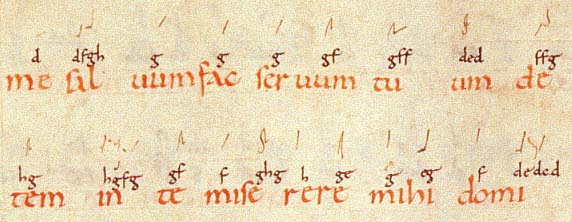 d dfgh g g g gf gff ded ffg
me sal uumfac ser uum tu um de
hg hgfg gf f ghg h ge g eg f deded
tem in te mise rere mihi domi